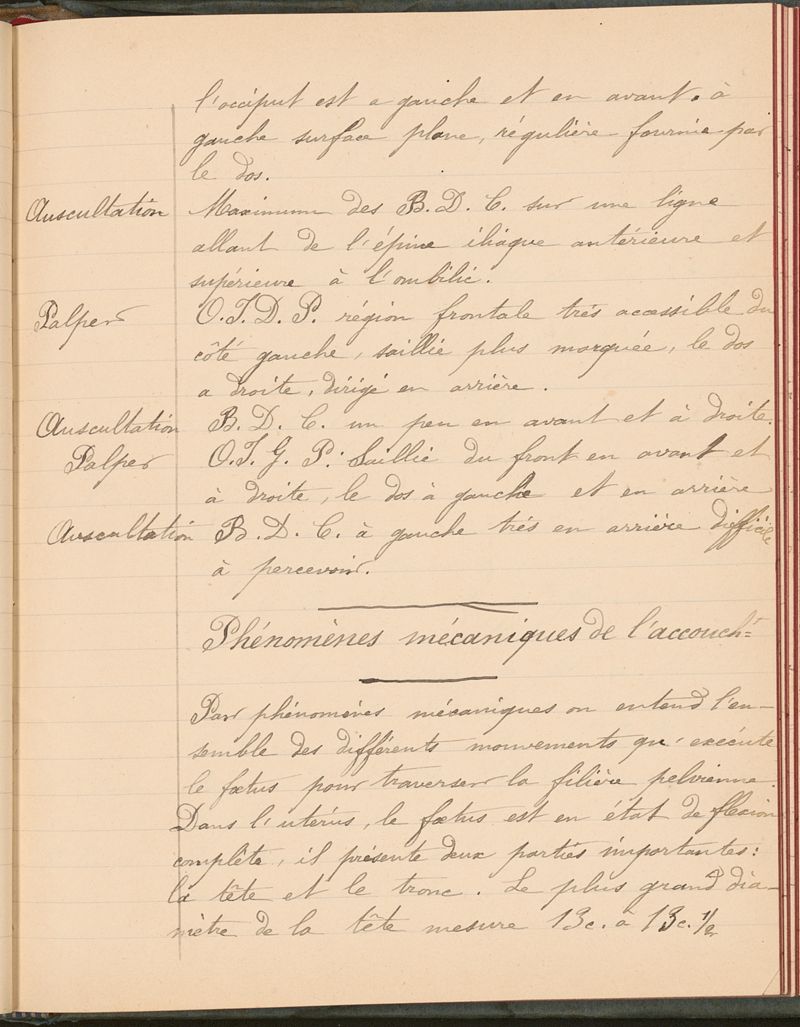 l'occiput est a gauche et en avant. à
gauche surface plane, régulière fournie par
le dos.
Auscultation Maximum des B. D. C. sur une ligne
allant de l'épine iliaque antérieure et
supérieure à l'ombilic.
Palper O. I. D. P. région frontale très accessible du
côté gauche, saillie plus marquée, le dos
a droite, dirigé en arrière.
Auscultation B. D. C. un peu en avant et à droite.
Palper O. I. G. P: Saillie du front en avant et
à droite, le dos à gauche et en arrière
Auscultation B. D. C. à gauche très en arrière difficile
à percevoir.
Phénomènes mécaniques de l'accouch t=
Par phénomènes mécaniques on entend l'en-
semble des différents mouvements qu'exécute
le fœtus pour traverser la filière pelvienne.
Dans l'utérus, le fœtus est en état de flexion
complète, il présente deux parties importantes:
la tête et le tronc. Le plus grand dia-
mètre de la tête mesure 13c. à 13c. 1/2